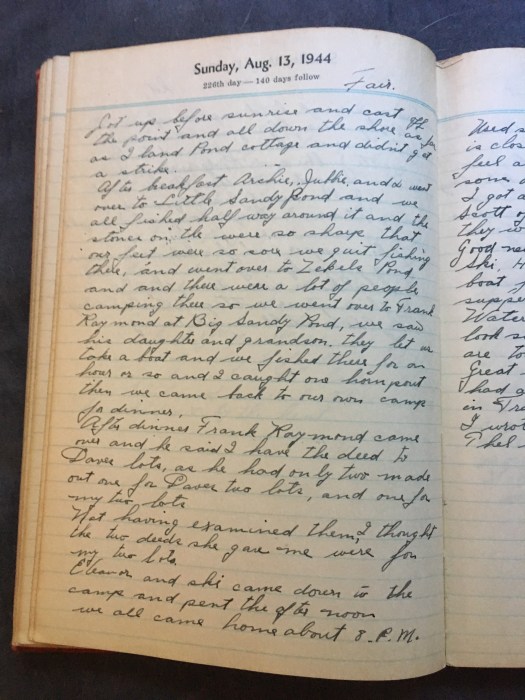 Sunday, Aug. 13, 1944
226th day—140 days follow
Fair.
Got up before sunrise and cast off
the point and all down the shore as far
as I land Pond cottage and didn't get
a strike.
After breakfast Archie, and I went
over to Little Sandy Pond and we
all fished half way around it and the
stones on the were so sharp that
our feet were so sore we quit fishing
there, and went over to Zekels Pond
and and there were a lot of people
camping there so we went over to Frank
Raymond at Big Sandy Pond, we saw
his daughter and grandson. they let us
take a boat and we fished there for an
hour or so and I caught one hornpout
then we came back to our own camp
for dinner.
After dinner Frank Raymond came
over and he said I have the deed to
Daves lots, as he had only two made
out one for Daves two lots, and one for
my two lots
Not having examined them, I thought
the two deeds she gave me were for
my two lots.
Eleanor and ski came down to the
camp and pent the after noon
we all came home about 8. P.M.
Used
is clos
feel a
some
I got a
Scott o
they so
Good ne
Ski. H
boat f
suppe
Water
look s
are to
Great
had a
in Tr
I wrot